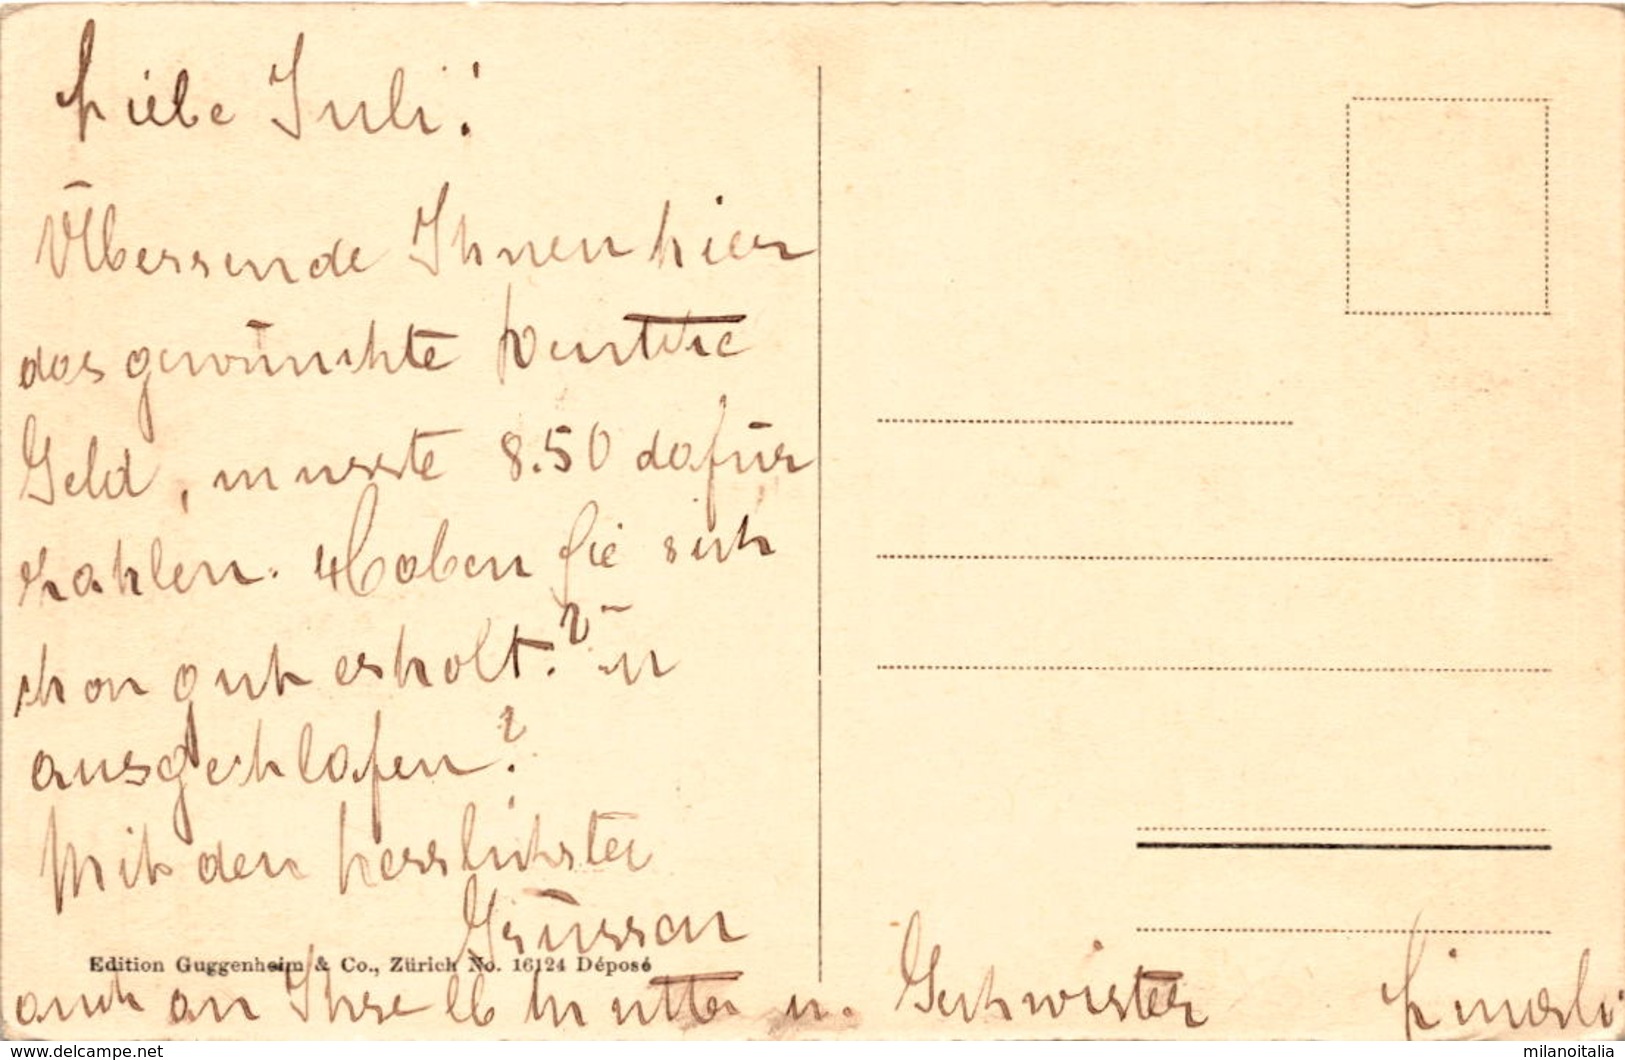 Liebe Juli!
Übersende Ihnen hier
das gewünschte
Geld, musste 8.50 dafür
zahlen. Haben Sie sich
schon gut erholt? u
ausgeschlafen?
Mit den herzlichsten
Grüssen
Edition Guggenheim & Co., Zürich No. 16124 Déposé
auch an Ihre lb Mutter u. Geschwister
milanoitalia
www.delcampe.net